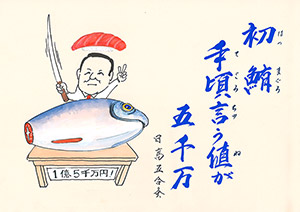 初鮪
はつ まぐろ
手頃言う値が
てごろ ね
五千万
1億5千万円!